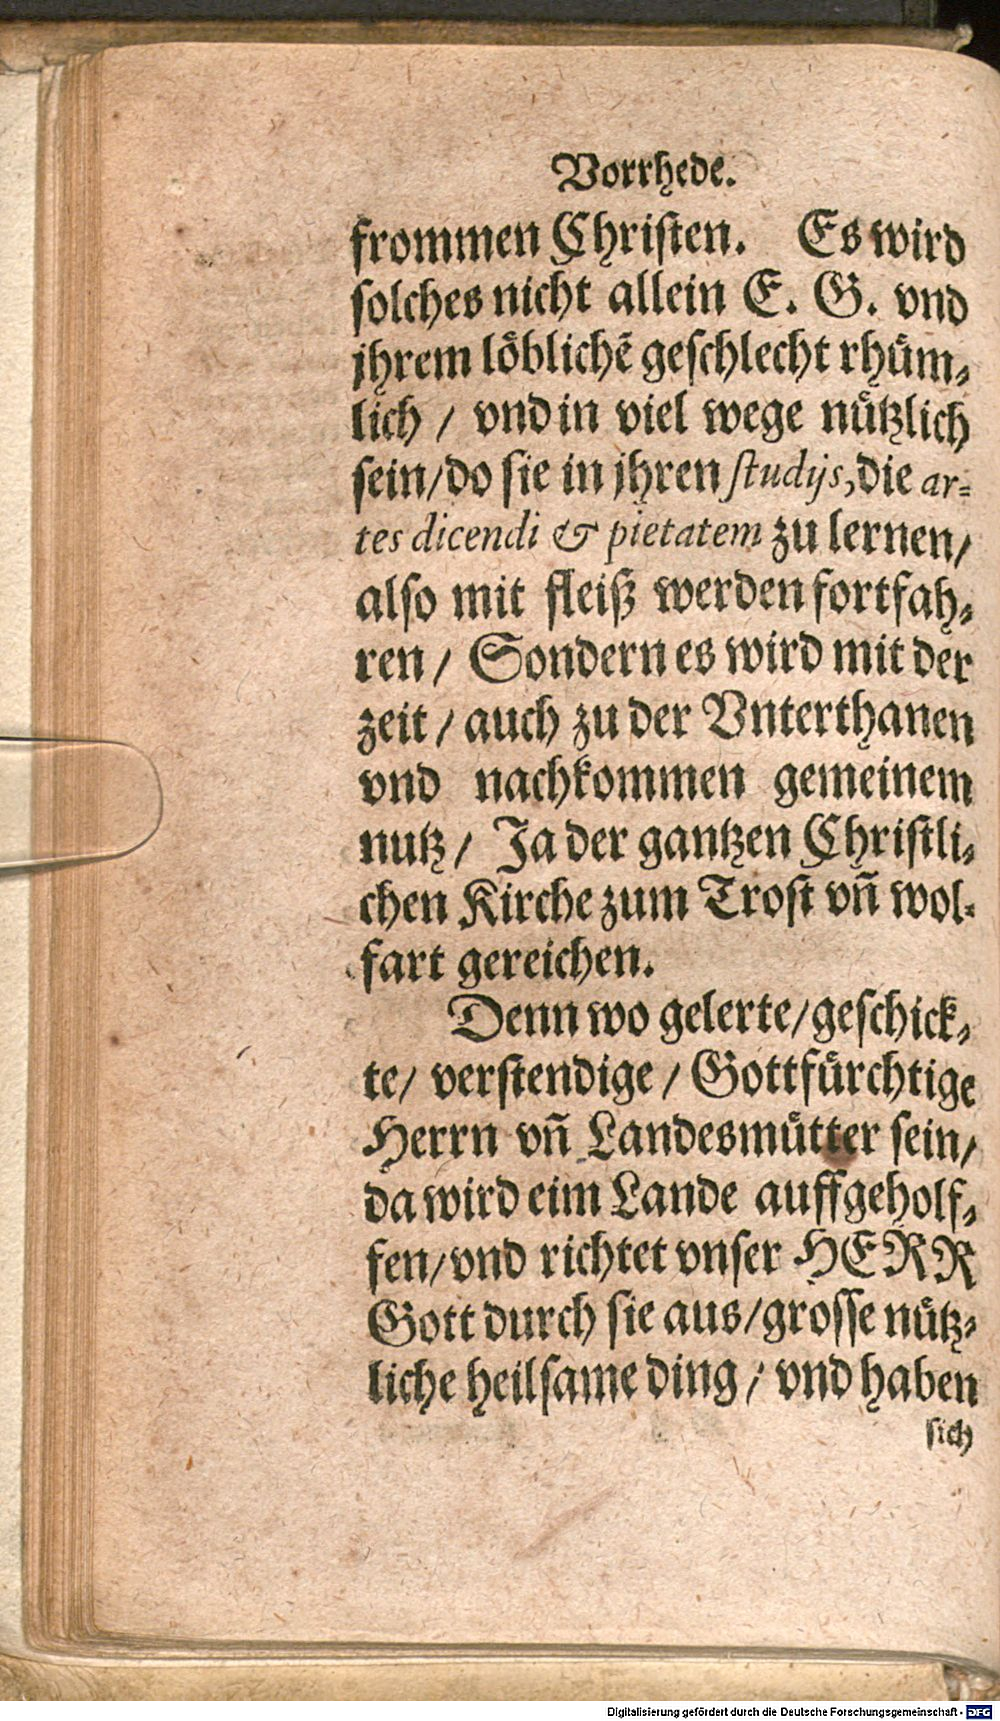 Vorrhede.
frommen Christen. Es wird
solches nicht allein E. G. vnd
jhrem löblichẽ geschlecht rhüm-
lich / vnd in viel wege nützlich
sein/do sie in jhren studijs,die ar-
tes dicendi & pietatem zu lernen/
also mit fleiß werden fortfah-
ren / Sondern es wird mit der
zeit / auch zu der Vnterthanen
vnd nachkommen gemeinem
nutz / Ja der gantzen Christli-
chen Kirche zum Trost vñ wol-
fart gereichen.
Denn wo gelerte/geschick-
te/ verstendige / Gottfürchtige
Herrn vñ Landesmütter sein/
da wird eim Lande auffgeholf-
fen/vnd richtet vnser HERR
Gott durch sie aus/grosse nütz-
liche heilsame ding / vnd haben
sich
Digitalisierung gefördert durch die Deutsche Forschungsgemeinschaft - DFG